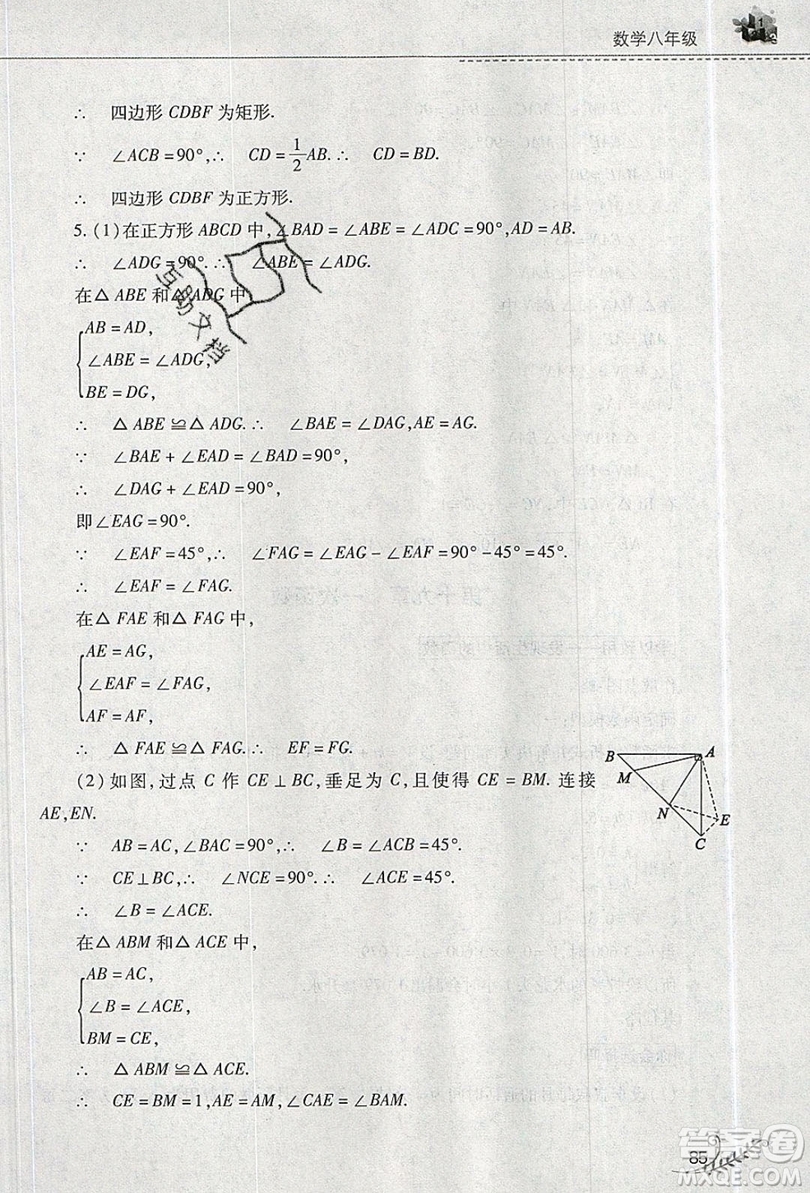 数学八年级
∴ 四边形 CDBF 为矩形.
∵ ∠ACB = 90°,∴ CD = \frac{1}{2}AB. ∴ CD = BD.
∴ 四边形 CDBF 为正方形.
5. (1)在正方形 ABCD 中,∠BAD = ∠ABE = ∠ADC = 90°,AD = AB.
∴ ∠ADG = 90°. ∴ ∠ABE = ∠ADG.
在△ ABE 和△ ADG 中
AB = AD,
∠ABE = ∠ADG,
BE = DG,
∴ △ ABE ≌△ ADG. ∴ ∠BAE = ∠DAG,AE = AG.
∵ ∠BAE + ∠EAD = ∠BAD = 90°,
∴ ∠DAG + ∠EAD = 90°,
即∠EAG = 90°.
∵ ∠EAF = 45°,∴ ∠FAG = ∠EAG − ∠EAF = 90° − 45° = 45°.
∴ ∠EAF = ∠FAG.
在△ FAE 和△ FAG 中,
AE = AG,
∠EAF = ∠FAG,
AF = AF,
∴ △ FAE ≌△ FAG. ∴ EF = FG.
(2)如图,过点 C 作 CE ⊥ BC,垂足为 C,且使得 CE = BM. 连接
AE,EN.
∵ AB = AC,∠BAC = 90°,∴ ∠B = ∠ACB = 45°.
∵ CE ⊥ BC,∴ ∠NCE = 90°. ∴ ∠ACE = 45°.
∴ ∠B = ∠ACE.
在△ ABM 和△ ACE 中,
AB = AC,
∠B = ∠ACE,
BM = CE,
∴ △ ABM ≌△ ACE.
∴ CE = BM = 1,AE = AM,∠CAE = ∠BAM.
B
A
M
N
E
C
互助文档
85
答案圈
MXQE.COM